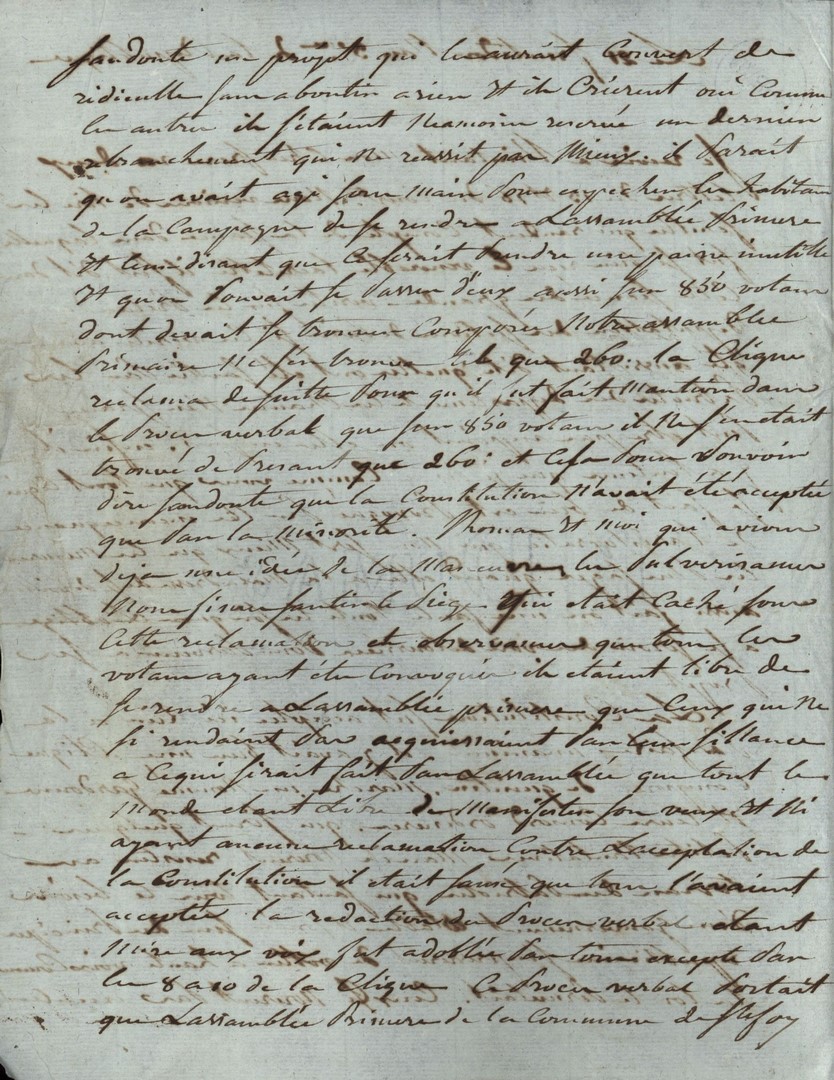 sandoute un projet qui les aurait Couvert de
ridiculle sans aboutir a rien et ils Crierent oui Comme
les autres ils s'étaient Neamoins reservé un dernier
retranchement qui Ne reussit pas Mieux. il Parait
qu'on avait agi sous main Pour empecher les habitans
de la Campagne de se rendre a Lassamblée Primere
et leur disant que Ce serait Prendre une paine inutille
et qu'on Pouvait se Passer d'eux aussi sur 850 votans
dont devait se trouver Composée Notre assamblée
Primaire Ne s'en trouva til que 260. la Clique
reclama de suitte Pour qu'il fut fait Mantion dans
le Proces verbal que sur 850 votans il Ne s'en etait
trouvé de Presant que 260: et Cela Pour Pouvoir
dire sandoute que la Constitution N'avait été acceptée
que Par la Minorité. Roman et Moi qui avions
deja une idée de la Maneuvre les Pulverisames
Nous fimes santir le Piege qui etait Caché sous
Cette reclamation et observames que tous les
votans ayant été Convoqués ils etaint libre de
se rendre a Lassamblée primere que Ceux qui Ne
si rendaint Pas acquiessaint Par leur sillance
a Ce qui serait fait Par Lassamblée que tout le
Monde etant Libre de Manifester son veux et Ni
ayant aucune reclamation Contre Lacceptation de
la Constitution il etait sansé que tous l'avaient
acceptée la redaction du Proces verbal etant
Mise aux voix fut adoptée Par tous excepté Par
les 8 a 10 de la Clique Ce Proces verbal Portait
que Lassamblée Primere de la Commune de Ste foy